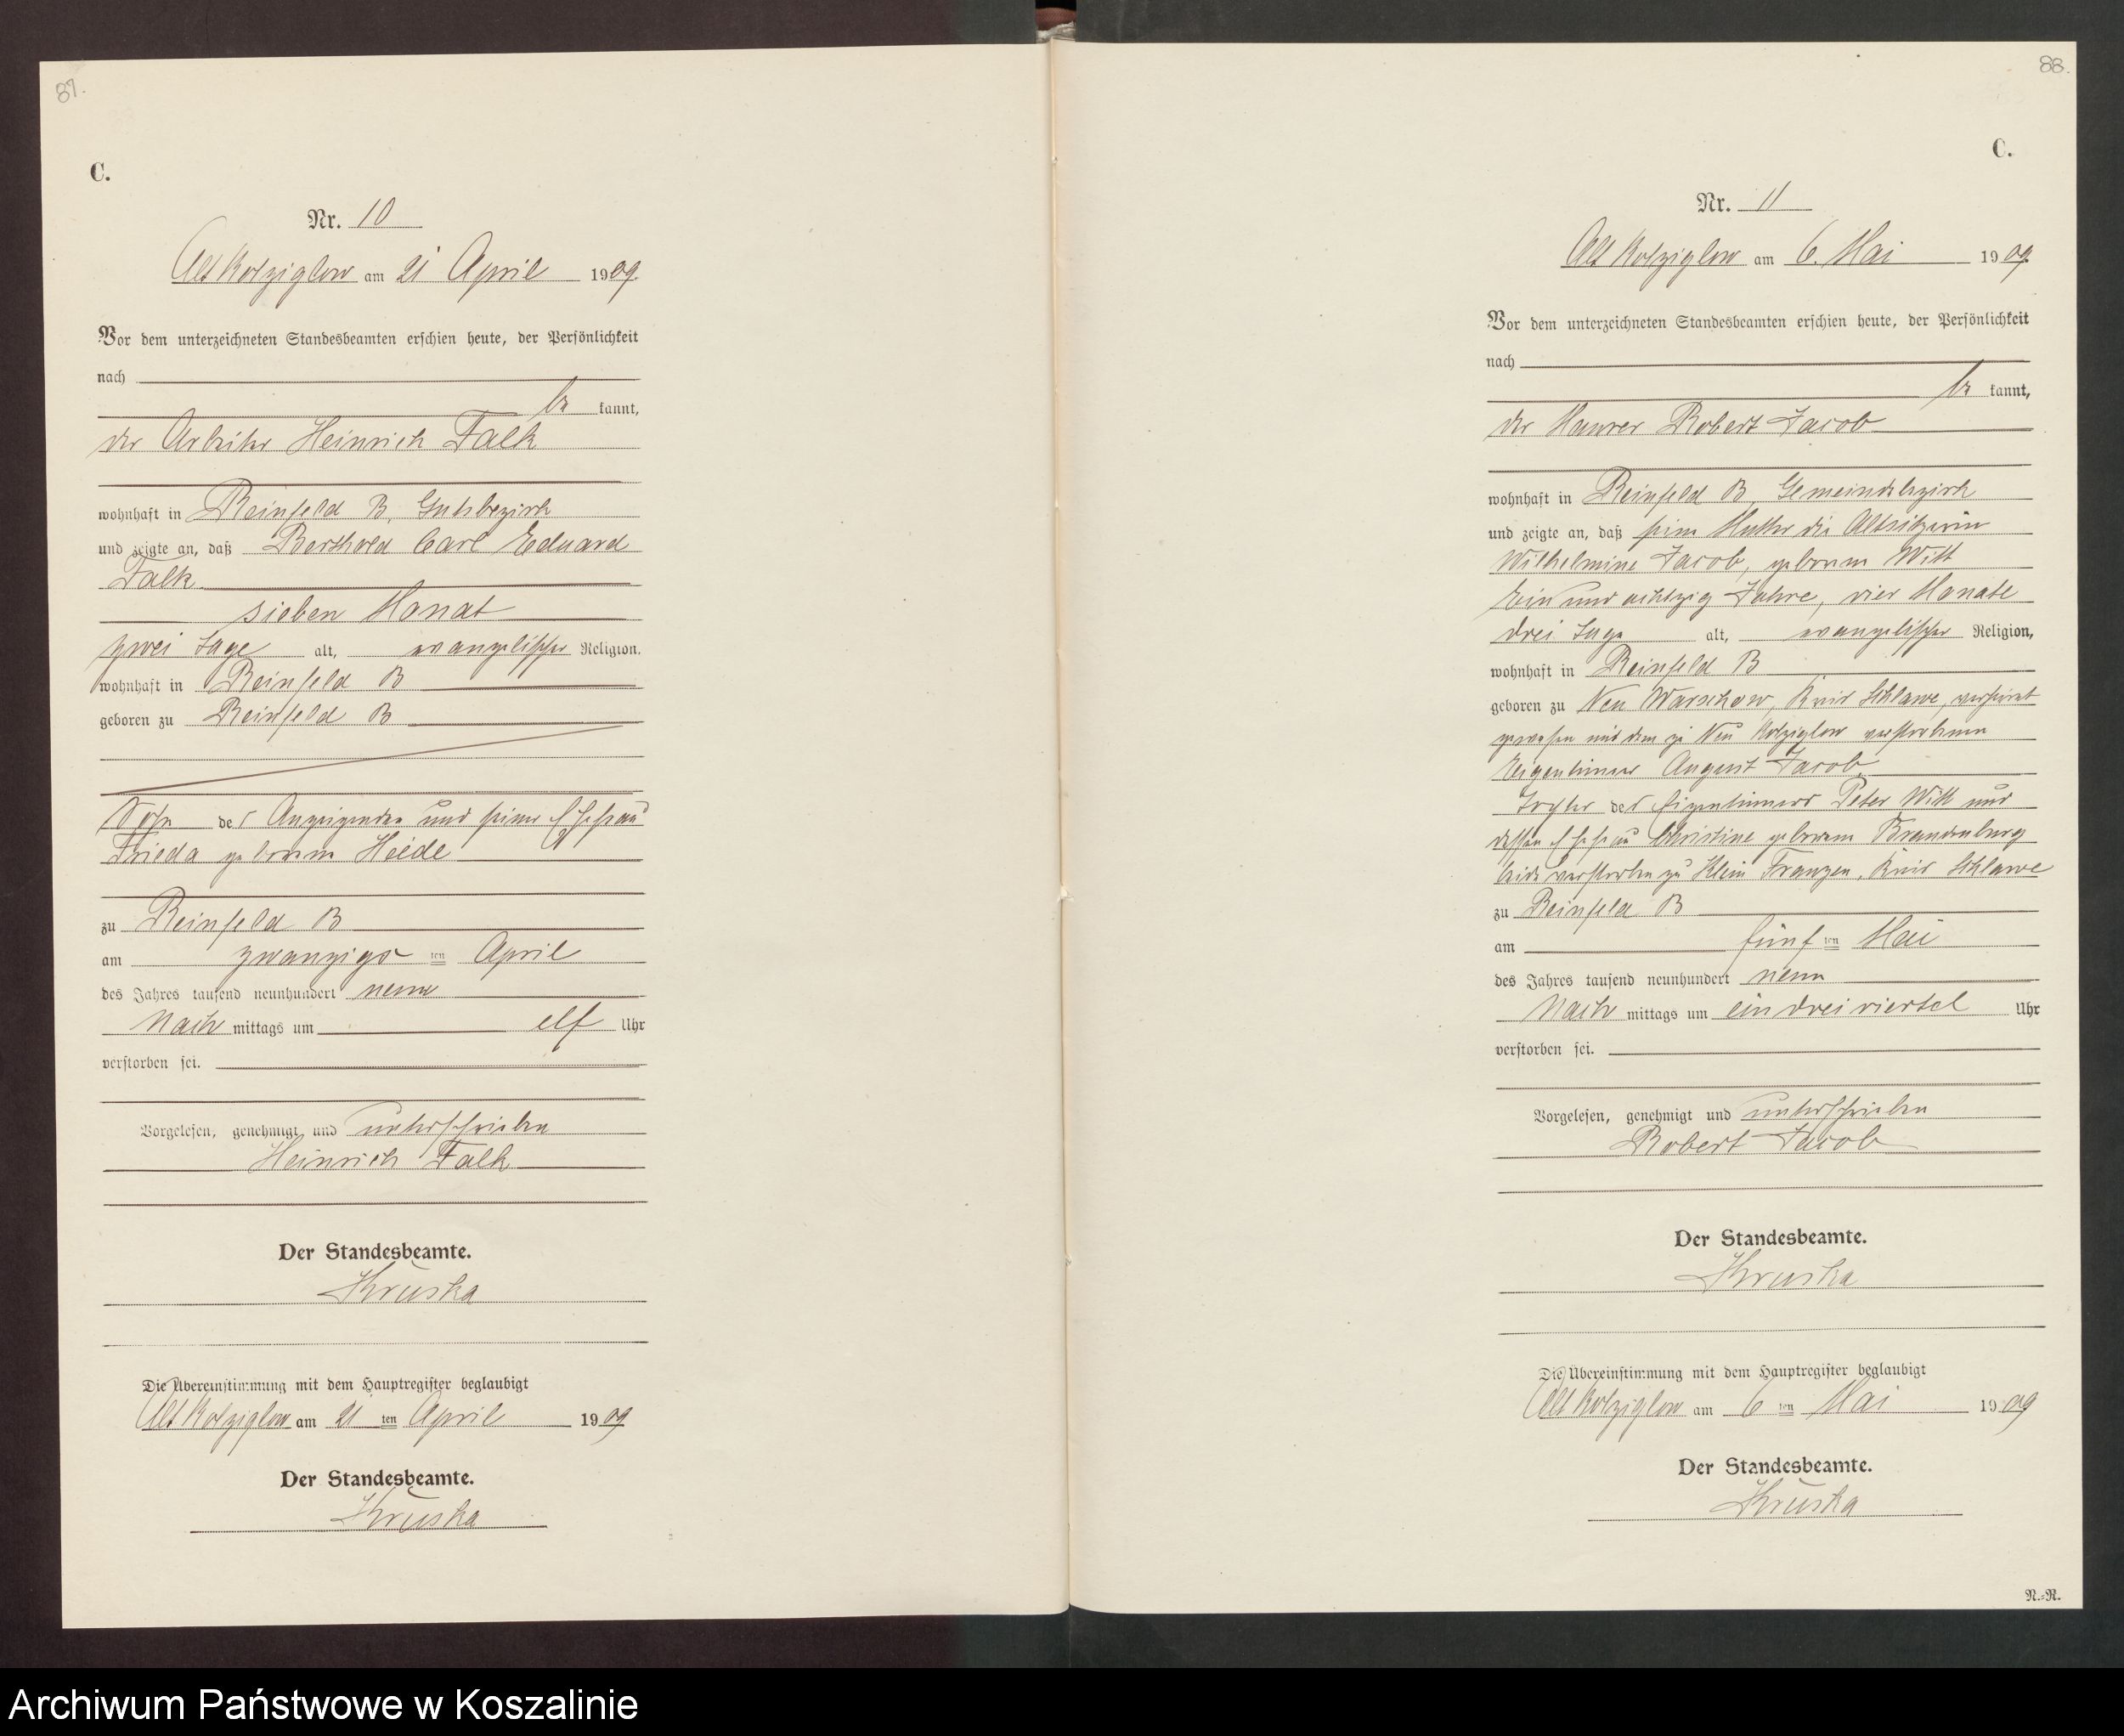 87.
C.
Nr. 10
Alt Kolziglow am 21 April 1909.
Vor dem unterzeichneten Standesbeamten erschien heute, der Persönlichkeit
nach
be kannt,
der Arbeiter Heinrich Falk
wohnhaft in Reinfeld B, Gutsbezirk
und zeigte an, daß Berthold Carl Eduard
Falk
sieben Monat
zwei Tage alt, evangelischer Religion,
wohnhaft in Reinfeld B
geboren zu Reinfeld B
Sohn des Anzeigenden und seiner Ehefrau
Frieda geborenen Heide
zu Reinfeld B
am zwanzigs ten April
des Jahres tausend neunhundert neun
Nach mittags um elf Uhr
verstorben sei.
Vorgelesen, genehmigt und unterschrieben
Heinrich Falk
Der Standesbeamte.
Kruska
Die Übereinstimmung mit dem Hauptregister beglaubigt
Alt Kolziglow am 21 ten April 1909
Der Standesbeamte.
Kruska
88.
C.
Nr. 11
Alt Kolziglow am 6. Mai 1909.
Vor dem unterzeichneten Standesbeamten erschien heute, der Persönlichkeit
nach
be kannt,
der Maurer Robert Jacob
wohnhaft in Reinfeld B, Gemeindebezirk
und zeigte an, daß seine Mutter die Altsitzerin
Wilhelmine Jacob, geborene Witt
Ein und achtzig Jahre, vier Monate
drei Tage alt, evangelischer Religion,
wohnhaft in Reinfeld B
geboren zu Neu Warschow, Kreis Schlawe, verheirat
gewesen mit dem zu Neu Kolziglow verstorbenen
Eigentümer August Jacob
Tochter des Eigentümers Peter Witt und
dessen Ehefrau Christine geborenen Brandenburg
beide verstorben zu Klein Franzen, Kreis Schlawe
zu Reinfeld B
am fünf ten Mai
des Jahres tausend neunhundert neun
Nach mittags um ein dreiviertel Uhr
verstorben sei.
Vorgelesen, genehmigt und unterschrieben
Robert Jacob
Der Standesbeamte.
Kruska
Die Übereinstimmung mit dem Hauptregister beglaubigt
Alt Kolziglow am 6 ten Mai 1909
Der Standesbeamte.
Kruska
N.-R.
Archiwum Państwowe w Koszalinie